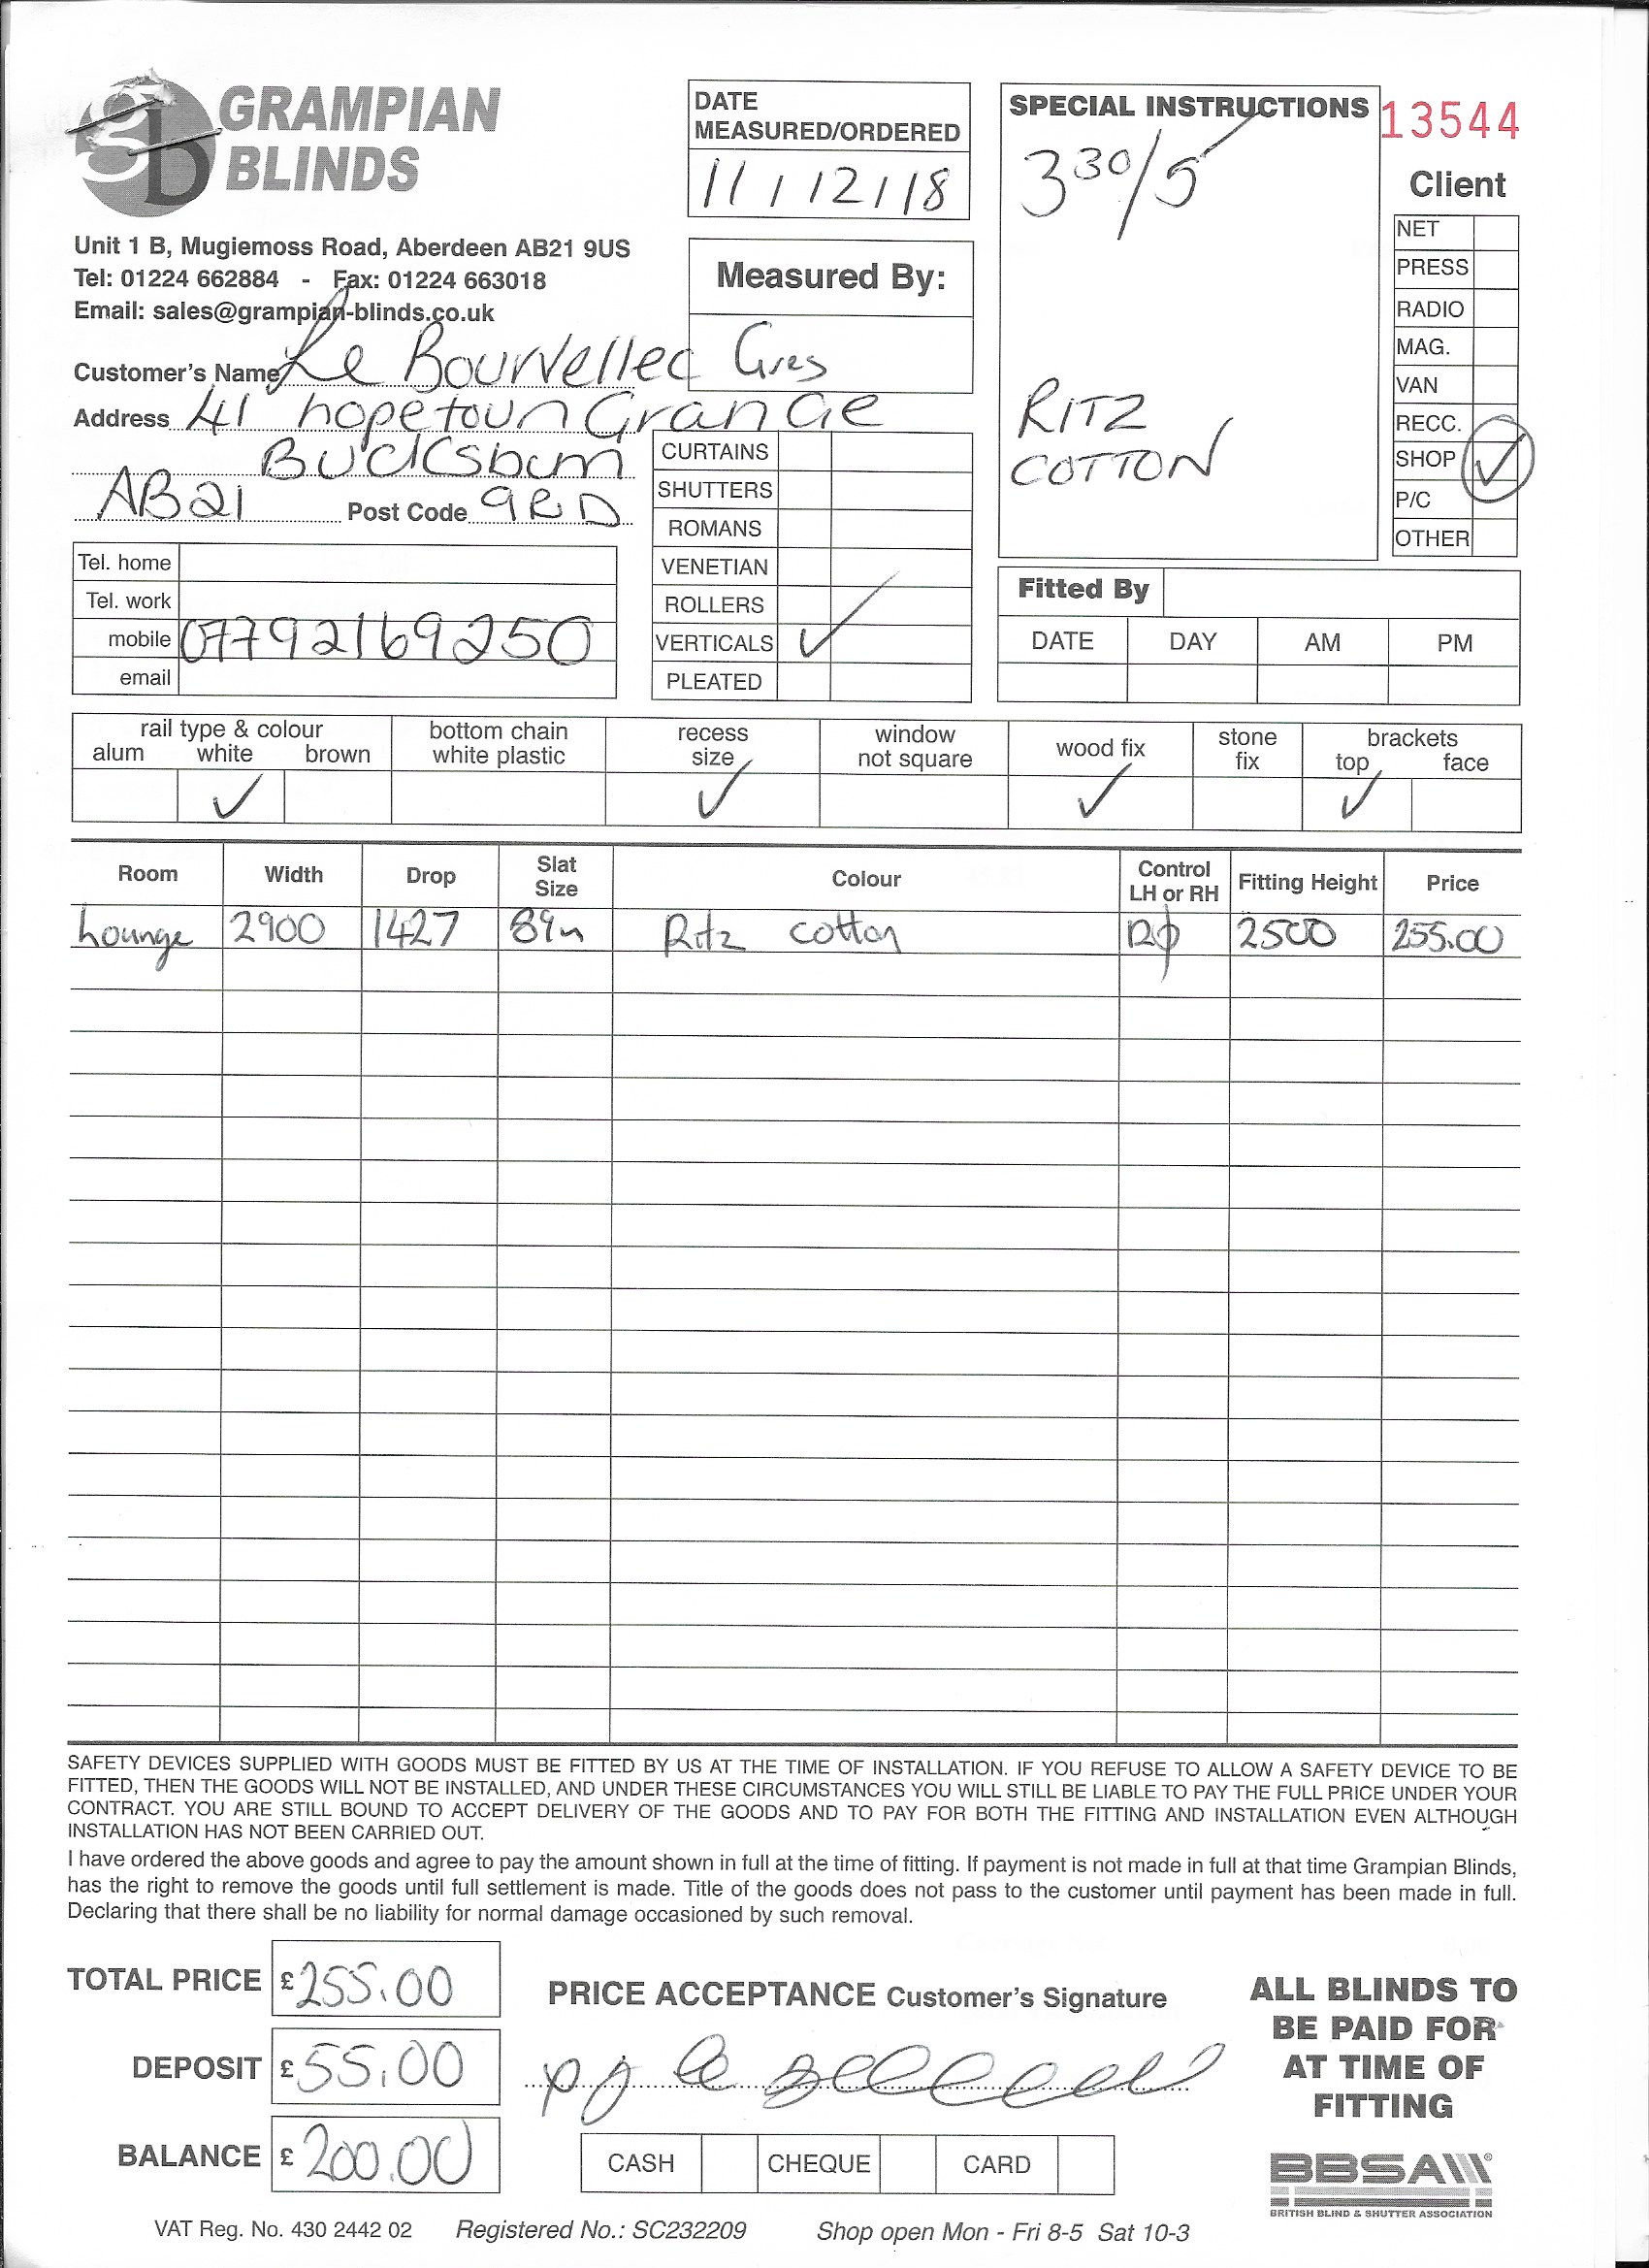 GRAMPIAN
BLINDS
Unit 1 B, Mugiemoss Road, Aberdeen AB21 9US
Tel: 01224 662884 - Fax: 01224 663018
Email: sales@grampian-blinds.co.uk
DATE
MEASURED/ORDERED
11/12/18
Measured By:
SPECIAL INSTRUCTIONS
330/5
RITZ
COTTON
13544
Client
NET
PRESS
RADIO
MAG.
VAN
RECC.
SHOP ✓
P/C
OTHER
Customer's Name Le Bourvellec
Address 41 hopetoun Grange
Bucksburn
AB21 Post Code 9RD
Tel. home
Tel. work
mobile 07792169250
email
CURTAINS
SHUTTERS
ROMANS
VENETIAN
ROLLERS
VERTICALS ✓
PLEATED
Fitted By
DATE DAY AM PM
rail type & colour bottom chain recess window wood fix stone brackets
alum white brown white plastic size not square fix top face
✓ ✓ ✓ ✓
Room Width Drop Slat Size Colour Control LH or RH Fitting Height Price
Lounge 2900 1427 89 Ritz cotton 2500 255.00
SAFETY DEVICES SUPPLIED WITH GOODS MUST BE FITTED BY US AT THE TIME OF INSTALLATION. IF YOU REFUSE TO ALLOW A SAFETY DEVICE TO BE
FITTED, THEN THE GOODS WILL NOT BE INSTALLED, AND UNDER THESE CIRCUMSTANCES YOU WILL STILL BE LIABLE TO PAY THE FULL PRICE UNDER YOUR
CONTRACT. YOU ARE STILL BOUND TO ACCEPT DELIVERY OF THE GOODS AND TO PAY FOR BOTH THE FITTING AND INSTALLATION EVEN ALTHOUGH
INSTALLATION HAS NOT BEEN CARRIED OUT.
I have ordered the above goods and agree to pay the amount shown in full at the time of fitting. If payment is not made in full at that time Grampian Blinds,
has the right to remove the goods until full settlement is made. Title of the goods does not pass to the customer until payment has been made in full.
Declaring that there shall be no liability for normal damage occasioned by such removal.
TOTAL PRICE £255.00
DEPOSIT £55.00
BALANCE £200.00
PRICE ACCEPTANCE Customer's Signature
CASH CHEQUE CARD
ALL BLINDS TO
BE PAID FOR
AT TIME OF
FITTING
BBSA
BRITISH BLIND & SHUTTER ASSOCIATION
VAT Reg. No. 430 2442 02 Registered No.: SC232209 Shop open Mon - Fri 8-5 Sat 10-3